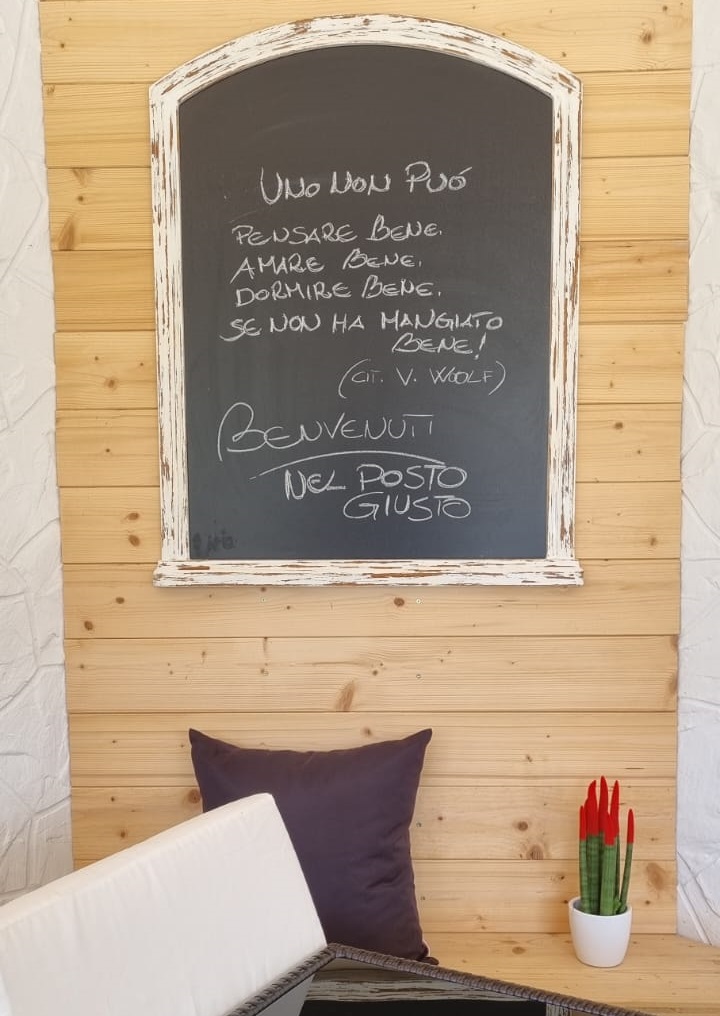 UNO NON PUÓ
PENSARE BENE.
AMARE BENE.
DORMIRE BENE.
SE NON HA MANGIATO
BENE!
(CIT. V. WOOLF)
BENVENUTI
NEL POSTO
GIUSTO